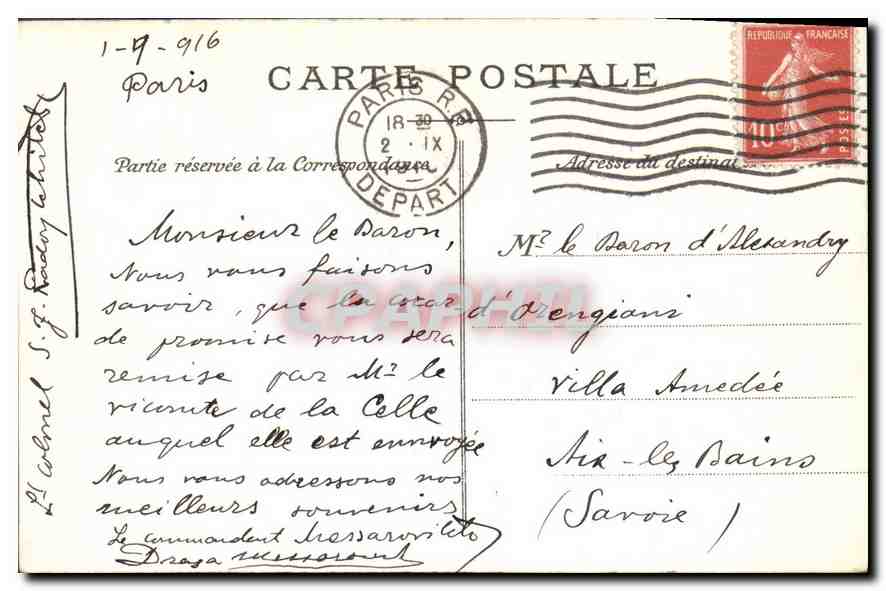 1-9-916
Paris
CARTE POSTALE
PARIS R.P.
18 30
2 · IX
DEPART
REPUBLIQUE FRANÇAISE
10c
POSTES
Partie réservée à la Correspondance
Adresse du destinat
Monsieur le Baron,
Nous vous faisons
savoir, que la cocar-
de promise vous sera
remise par Mr le
vicomte de la Celle
auquel elle est envoyée
Nous vous adressons nos
meilleurs souvenirs
Le commandant
Draga
Lt Colonel S. J.
Mr le Baron d'Alexandry
d'Orengiani
Villa Amedée
Aix-les Bains
(Savoie)
CPAPHIL